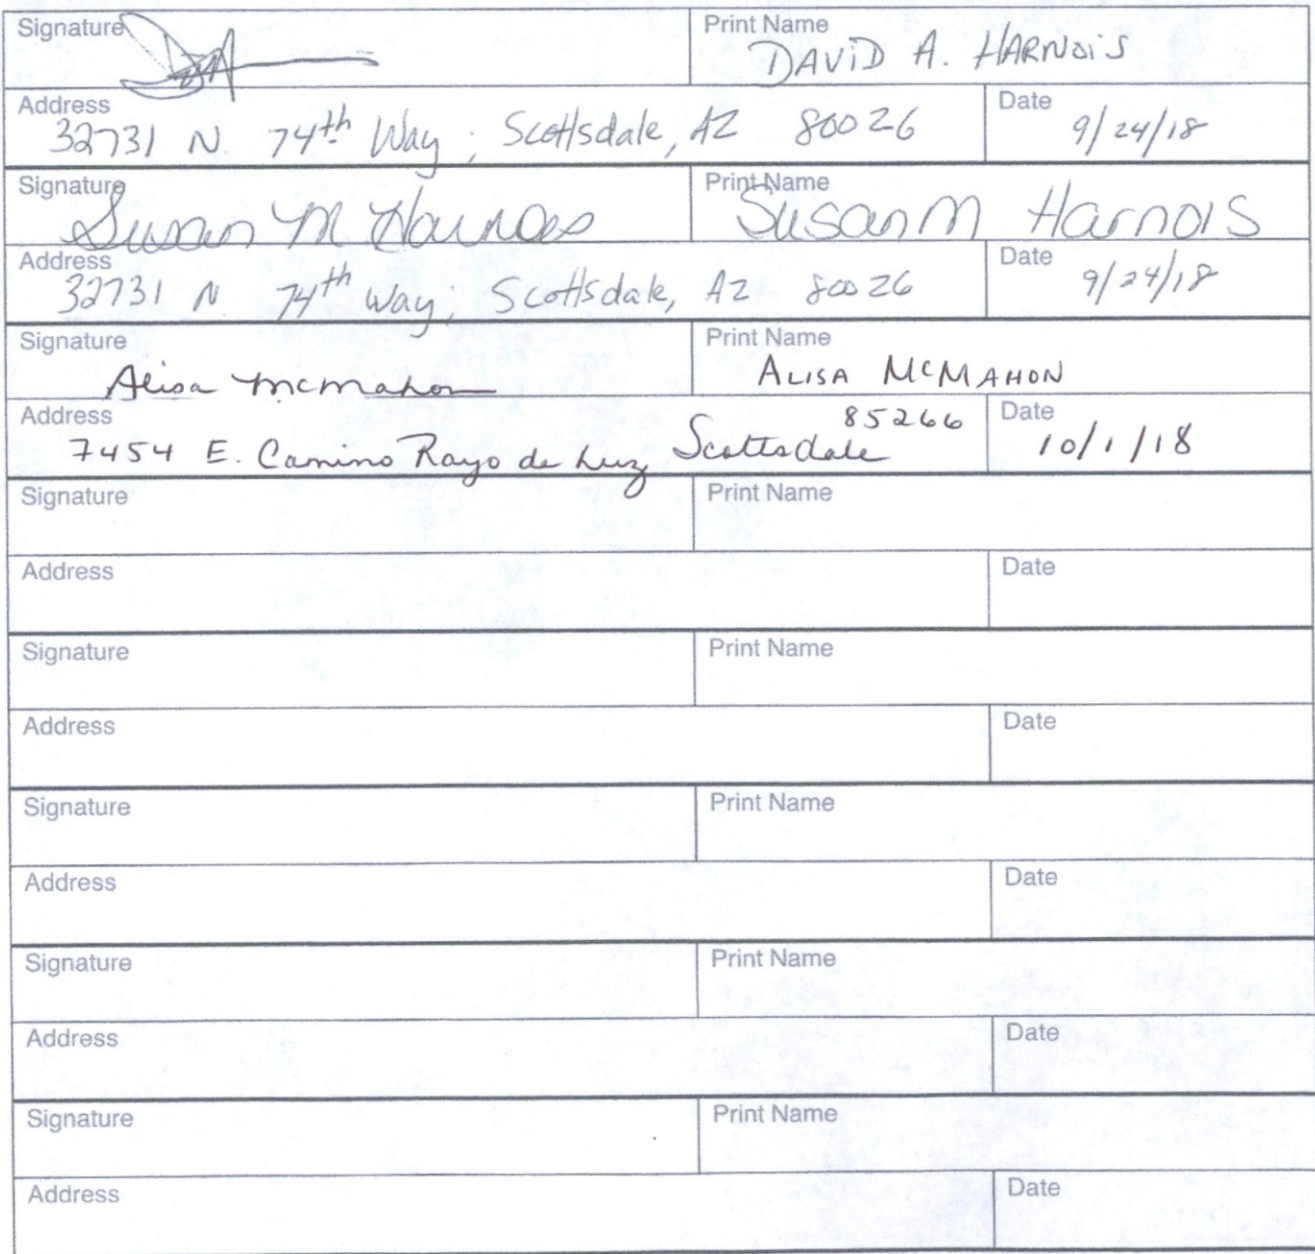 Signature Print Name
DAVID A. HARNOIS
Address Date
32731 N. 74th Way; Scottsdale, AZ 80026 9/24/18
Signature Print Name
Susan M Harnois Susan M Harnois
Address Date
32731 N. 74th Way; Scottsdale, AZ 80026 9/24/18
Signature Print Name
Alisa McMahon ALISA McMAHON
Address 85266 Date
7454 E. Camino Rayo de Luz Scottsdale 10/1/18
Signature Print Name
Address Date
Signature Print Name
Address Date
Signature Print Name
Address Date
Signature Print Name
Address Date
Signature Print Name
Address Date